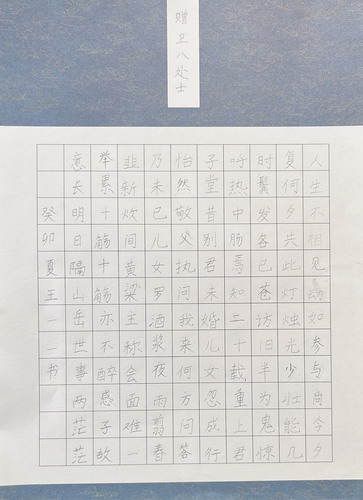 赠卫八处士
人生不相见动如参与商今夕
复何夕共此灯烛光少壮能几
时鬓发各已苍访旧半为鬼惊
呼热中肠焉知二十载重上君
子堂昔别君未婚儿女忽成行
怡然敬父执问我来何方问答
乃未已儿女罗酒浆夜雨翦春
韭新炊间黄粱主称会面难一
举累十觞十觞亦不醉感子故
意长明日隔山岳世事两茫茫
癸卯夏王一一书